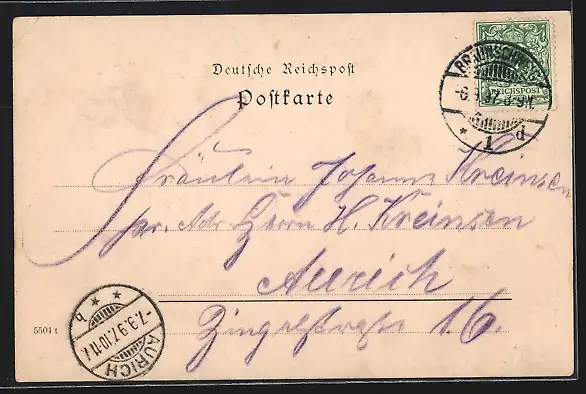 Deutsche Reichspost
Postkarte
REICHSPOST
BRAUNSCHWEIG
-6.9.97. 8-9N.
* 1 d
Fräulein Johanne Kreinsen
pr. Adr. Herrn H. Kreinsen
Aurich
Zingelstraße 16.
5504 t
b * *
-7.9.97.10-11V.
AURICH